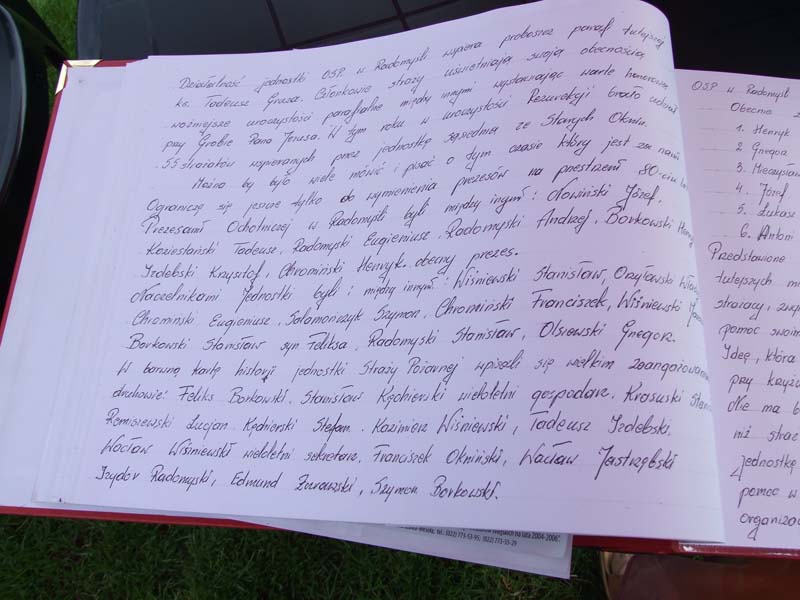 Działalność jednostki OSP. w Radomyśli wspiera proboszcz parafi tutejszej
ks. Tadeusz Grusza. Członkowie straży uświetniają swoją obecnością
ważniejsze uroczystości parafialne między innymi wystawiając warte honorowa
przy Grobie Pana Jezusa. W tym roku w uroczystości Rezurekcji brało udział
55 strażaków wspieranych przez jednostkę sąsiednia ze Starych Oknin.
Można by było wiele mówić i pisać o tym czasie który jest za nami
Ograniczę się jeszcze tylko do wymienienia prezesów na przestrzeni 80-ciu
Prezesami Ochotniczej w Radomyśli byli między innymi: Nowiński Józef,
Tadeusz, Radomyski Eugieniusz, Radomyski Andrzej, Borkowski
Izdebski Krzysztof, Chromiński Henryk obecny prezes.
Naczelnikami jednostki byli i między innymi: Wiśniewski Stanisław,
Chromiński Eugieniusz, Salamończyk Szymon, Chromiński Franciszek, Wiśniewski
Borkowski Stanisław syn Feliksa, Radomyski Stanisław, Olsiewski Gregorz.
W barwną kartę historii jednostki Straży Pożarnej wpisali się wielkim
druhowie: Feliks Borkowski, Stanisław Kędzierski wieloletni gospodarz, Krasuski
Remiszewski Lucjan Kędzierski Stefan, Kazimierz Wiśniewski, Tadeusz Izdebski,
Wacław Wiśniewski wieloletni sekretarz, Franciszek Okniński, Wacław Jastrzębski
Izydor Radomyski, Edmund Żurawski, Szymon Borkowski.
OSP w Radomyśli
Obecnie
1. Henryk
2 Gregor
3. Mieczysław
4. Józef
5. Łukasz
6. Antoni
Przedstawione
tutejszych
strażacy,
pomoc swoim
Ideę, która
przy
Nie ma
niż straż
jednostkę
pomoc w
tel.: (022) 773-53-95; (022) 773-33-29
na lata 2004-2006"